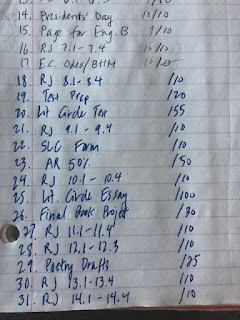 14. Presidents' Day 10/10
15. Page for Eng. B 9/10
16. RJ 7.1-7.4 10/10
17. EC Odes/BHM 10/10
18. RJ 8.1-8.4 /10
19. Test Prep /20
20. Lit Circle Test /55
21. RJ 9.1-9.4 /10
22. SLC Form /10
23. AR 50% /50
24. RJ 10.1-10.4 /10
25. Lit. Circle Essay /100
26. Final Book Project /30
27. RJ 11.1-11.4 /10
28. RJ 12.1-12.3 /10
29. Poetry Drafts /25
30. RJ 13.1-13.4 /10
31. RJ 14.1-14.4 /10